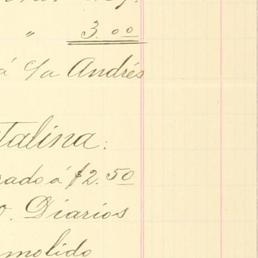 " 3.00
á c/u Andrés
talina:
rado á $2.50
o. Diarios
molido